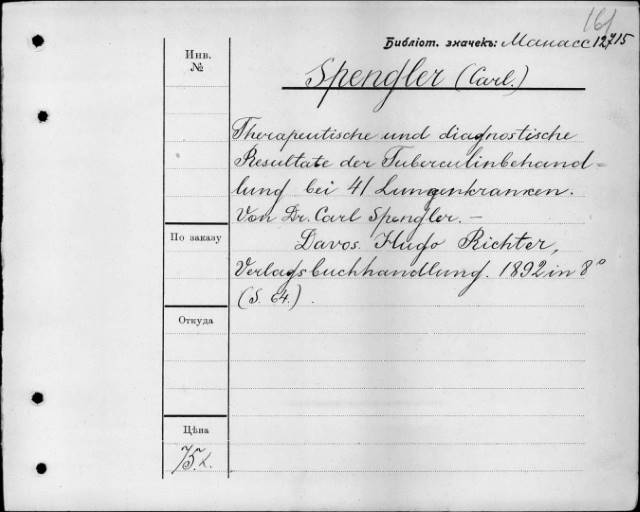 161
Библіот. значекъ: Манасс 12715
Инв.
№
Spengler (Carl.)
Therapeutische und diagnostische
Resultate der Tuberculinbehand-
lung bei 41 Lungenkranken.
Von Dr. Carl Spengler. —
По заказу
Davos. Hugo Richter,
Verlagsbuchhandlung. 1892 in 8°
(S. 64.).
Откуда
Цѣна
75 к.